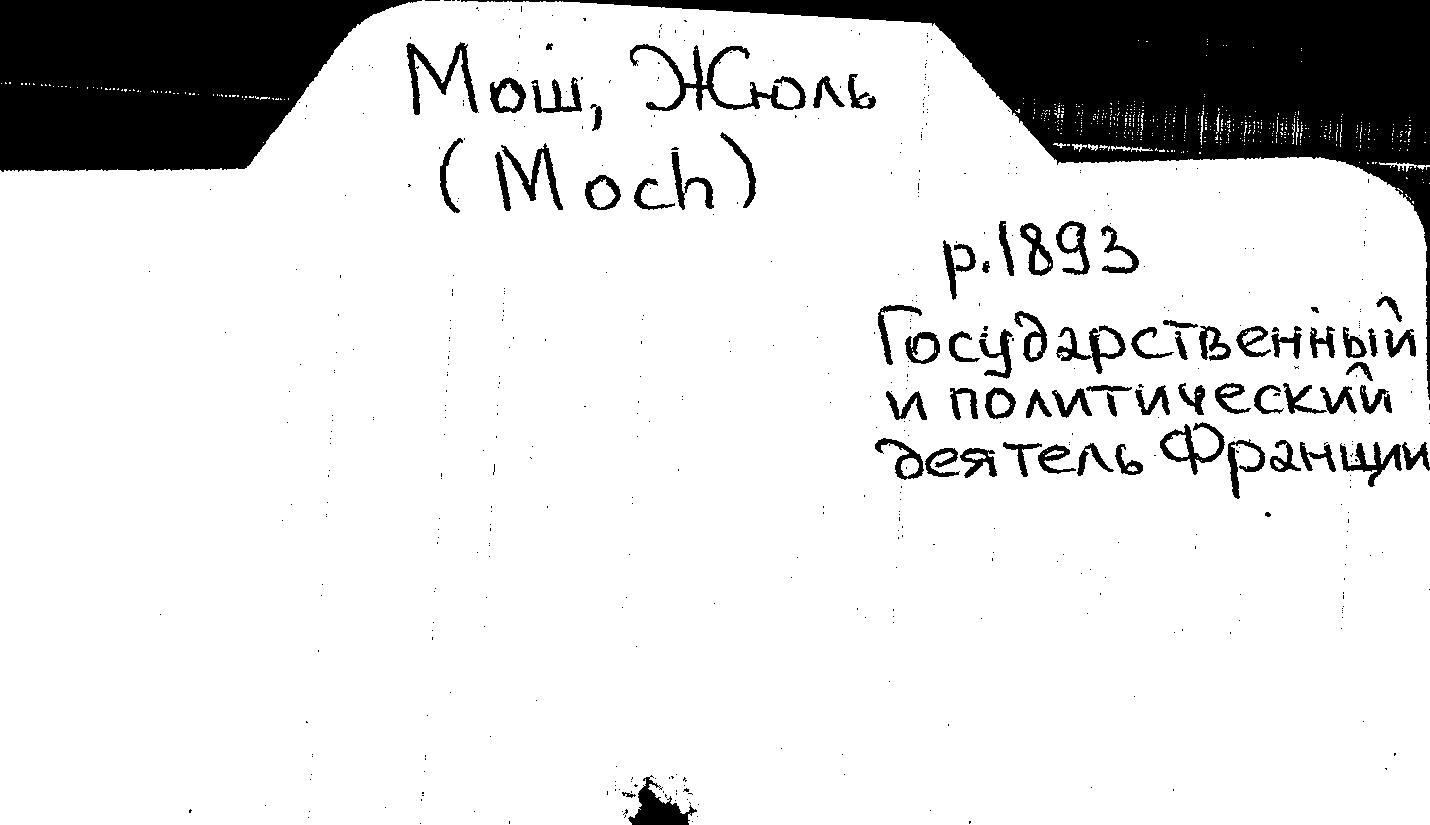 Мош, Жюль
(Moch)
р.1893
Государственный
и политический
деятель Франции